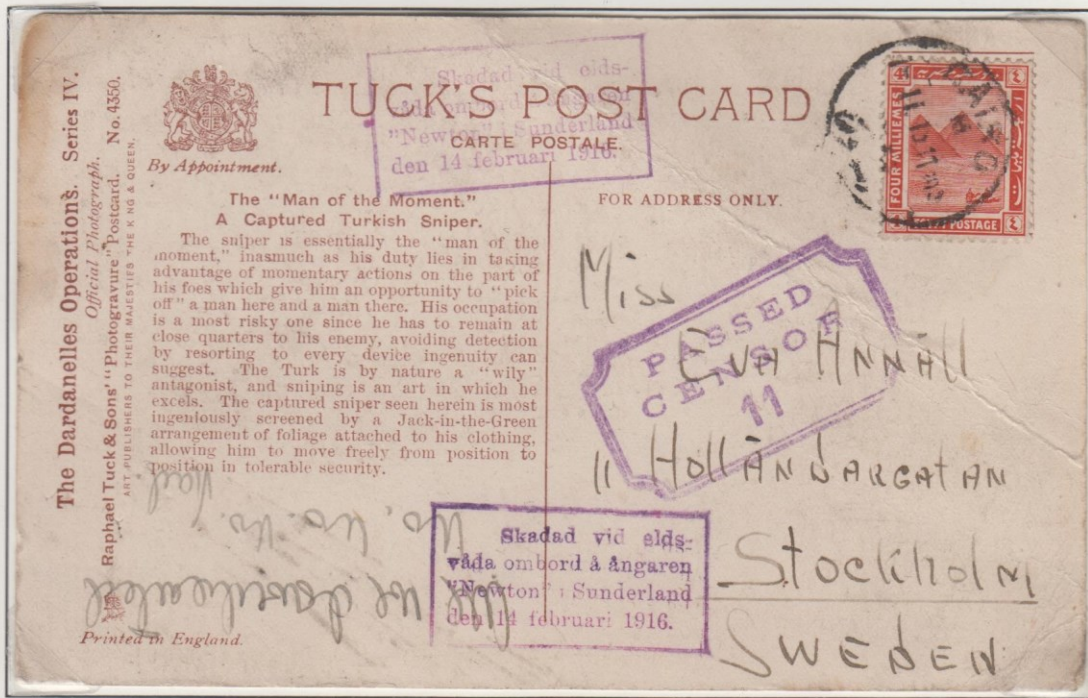 The Dardanelles Operations. Series IV.
Official Photograph.
Raphael Tuck & Sons' "Photogravure" Postcard. No. 4350.
ART PUBLISHERS TO THEIR MAJESTIES THE KING & QUEEN.
By Appointment.
TUCK'S POST CARD
CARTE POSTALE.
Skadad vid elds-
våda ombord å ångaren
"Newton" i Sunderland
den 14 februari 1916.
The "Man of the Moment."
A Captured Turkish Sniper.
The sniper is essentially the "man of the
moment," inasmuch as his duty lies in taking
advantage of momentary actions on the part of
his foes which give him an opportunity to "pick
off" a man here and a man there. His occupation
is a most risky one since he has to remain at
close quarters to his enemy, avoiding detection
by resorting to every device ingenuity can
suggest. The Turk is by nature a "wily"
antagonist, and sniping is an art in which he
excels. The captured sniper seen herein is most
ingeniously screened by a Jack-in-the-Green
arrangement of foliage attached to his clothing,
allowing him to move freely from position to
position in tolerable security.
Printed in England.
FOR ADDRESS ONLY.
CAIRO
FOUR MILLIEMES
POSTAGE
PASSED
CENSOR
11
Miss
Eva Annäll
11 Hollandargatan
Stockholm
SWEDEN
Skadad vid elds-
våda ombord å ångaren
"Newton" i Sunderland
den 14 februari 1916.